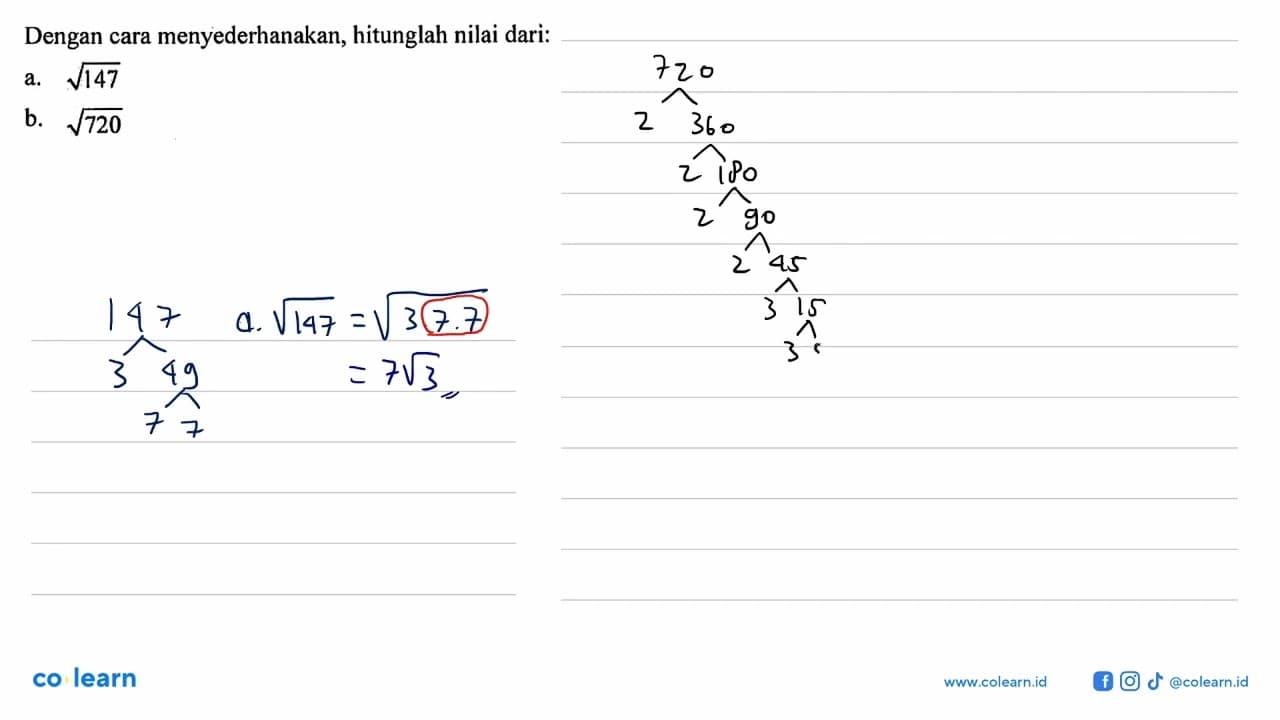 Dengan cara menyederhanakan, hitunglah nilai dari:
a. √147
b. √720
147
3 49
7 7
a. √147 = √3 7.7
= 7√3
720
2 360
2 180
2 90
2 45
3 15
3
co learn
www.colearn.id
@colearn.id